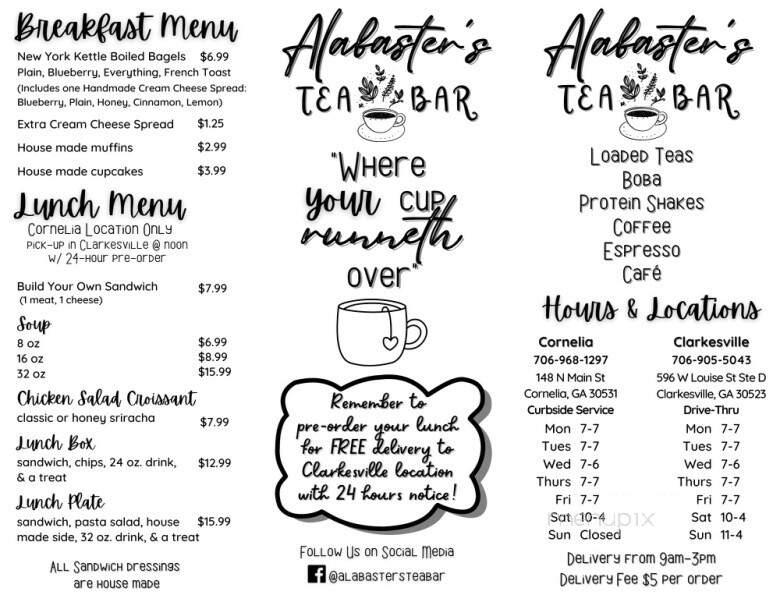 Breakfast Menu
New York Kettle Boiled Bagels $6.99
Plain, Blueberry, Everything, French Toast
(Includes one Handmade Cream Cheese Spread:
Blueberry, Plain, Honey, Cinnamon, Lemon)
Extra Cream Cheese Spread $1.25
House made muffins $2.99
House made cupcakes $3.99
Lunch Menu
Cornelia Location Only
Pick-up in Clarkesville @ noon
w/ 24-hour pre-order
Build Your Own Sandwich $7.99
(1 meat, 1 cheese)
Soup
8 oz $6.99
16 oz $8.99
32 oz $15.99
Chicken Salad Croissant
classic or honey sriracha $7.99
Lunch Box
sandwich, chips, 24 oz. drink, $12.99
& a treat
Lunch Plate
sandwich, pasta salad, house $15.99
made side, 32 oz. drink, & a treat
All Sandwich dressings
are house made
Alabaster's
TEA BAR
"Where
your cup
runneth
over"
Remember to
pre-order your lunch
for FREE delivery to
Clarkesville location
with 24 hours notice!
Follow Us on Social Media
f @alabastersteabar
Alabaster's
TEA BAR
Loaded Teas
Boba
Protein Shakes
Coffee
Espresso
Café
Hours & Locations
Cornelia
706-968-1297
148 N Main St
Cornelia, GA 30531
Curbside Service
Mon 7-7
Tues 7-7
Wed 7-6
Thurs 7-7
Fri 7-7
Sat 10-4
Sun Closed
Clarkesville
706-905-5043
596 W Louise St Ste D
Clarkesville, GA 30523
Drive-Thru
Mon 7-7
Tues 7-7
Wed 7-6
Thurs 7-7
Fri 7-7
Sat 10-4
Sun 11-4
menupix
Delivery from 9am-3pm
Delivery Fee $5 per order